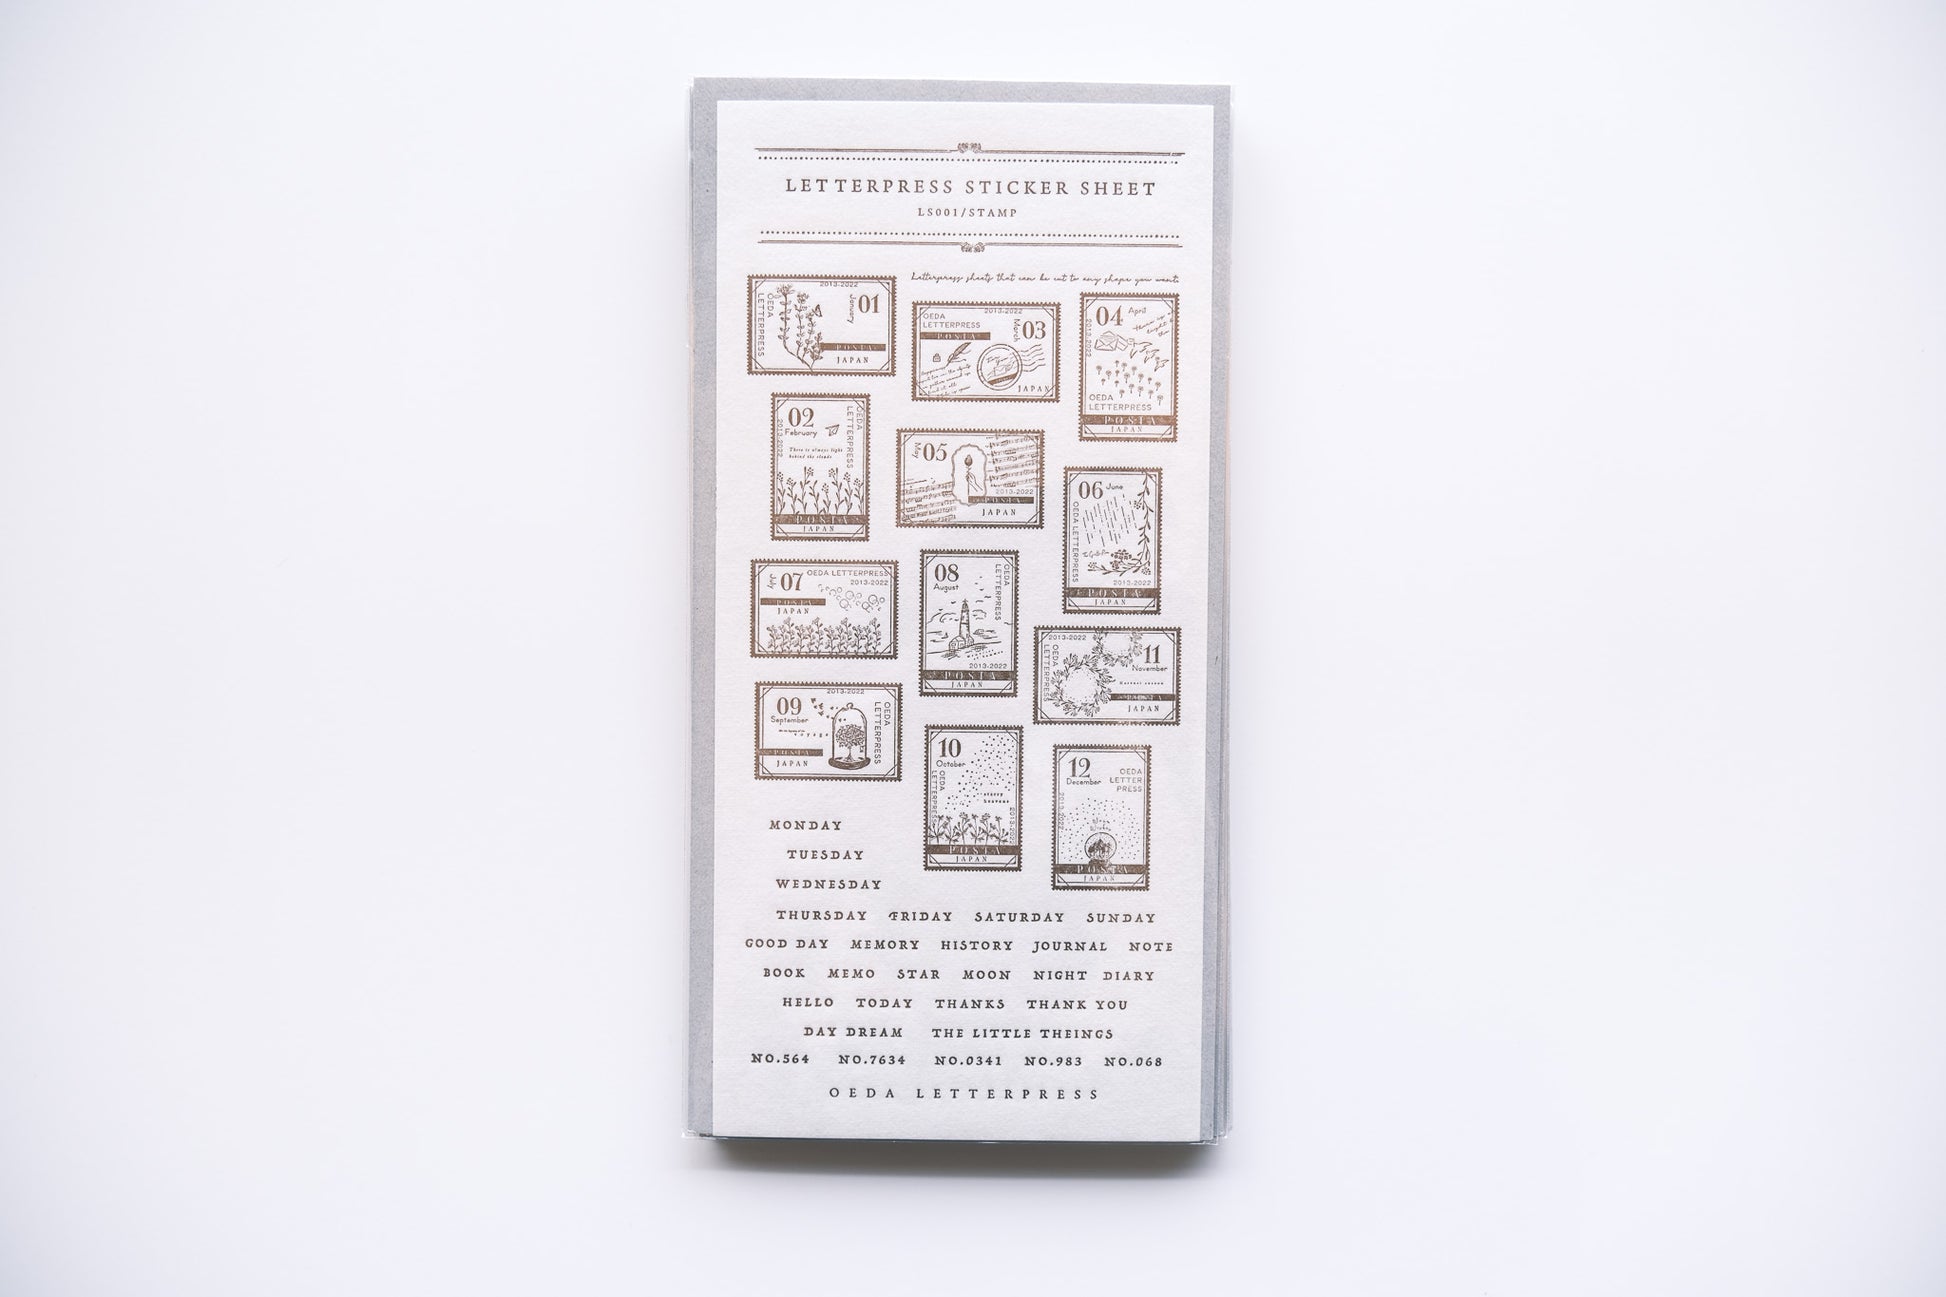 LETTERPRESS STICKER SHEET
LS001/STAMP
Letterpress sheets that can be cut to any shape you want.
2013-2022
OEDA
LETTERPRESS
January
01
POSTA
JAPAN
OEDA
LETTERPRESS
2013-2022
March
03
POSTA
JAPAN
04
April
2013-2022
OEDA
LETTERPRESS
POSTA
JAPAN
02
February
OEDA
LETTERPRESS
2013-2022
There is always light
behind the clouds
POSTA
JAPAN
May
05
2013-2022
POSTA
JAPAN
06
June
OEDA LETTERPRESS
2013-2022
POSTA
JAPAN
July
07
OEDA LETTERPRESS
2013-2022
POSTA
JAPAN
08
August
OEDA
LETTERPRESS
2013-2022
POSTA
JAPAN
2013-2022
OEDA
LETTERPRESS
11
November
POSTA
JAPAN
2013-2022
09
September
OEDA
LETTERPRESS
voyage
POSTA
JAPAN
10
October
OEDA
LETTERPRESS
starry
heavens
2013-2022
POSTA
JAPAN
12
December
OEDA
LETTER
PRESS
POSTA
JAPAN
MONDAY
TUESDAY
WEDNESDAY
THURSDAY FRIDAY SATURDAY SUNDAY
GOOD DAY MEMORY HISTORY JOURNAL NOTE
BOOK MEMO STAR MOON NIGHT DIARY
HELLO TODAY THANKS THANK YOU
DAY DREAM THE LITTLE THEINGS
NO.564 NO.7634 NO.0341 NO.983 NO.068
OEDA LETTERPRESS